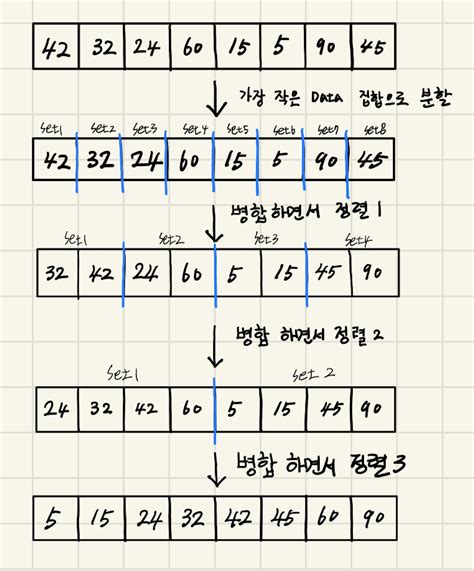 42 32 24 60 15 5 90 45
가장 작은 Data 집합으로 분할
set1 set2 set3 set4 set5 set6 set7 set8
42 32 24 60 15 5 90 45
병합 하면서 정렬 1
set1 set2 set3 set4
32 42 24 60 5 15 45 90
병합 하면서 정렬 2
set1 set2
24 32 42 60 5 15 45 90
병합 하면서 정렬 3
5 15 24 32 42 45 60 90